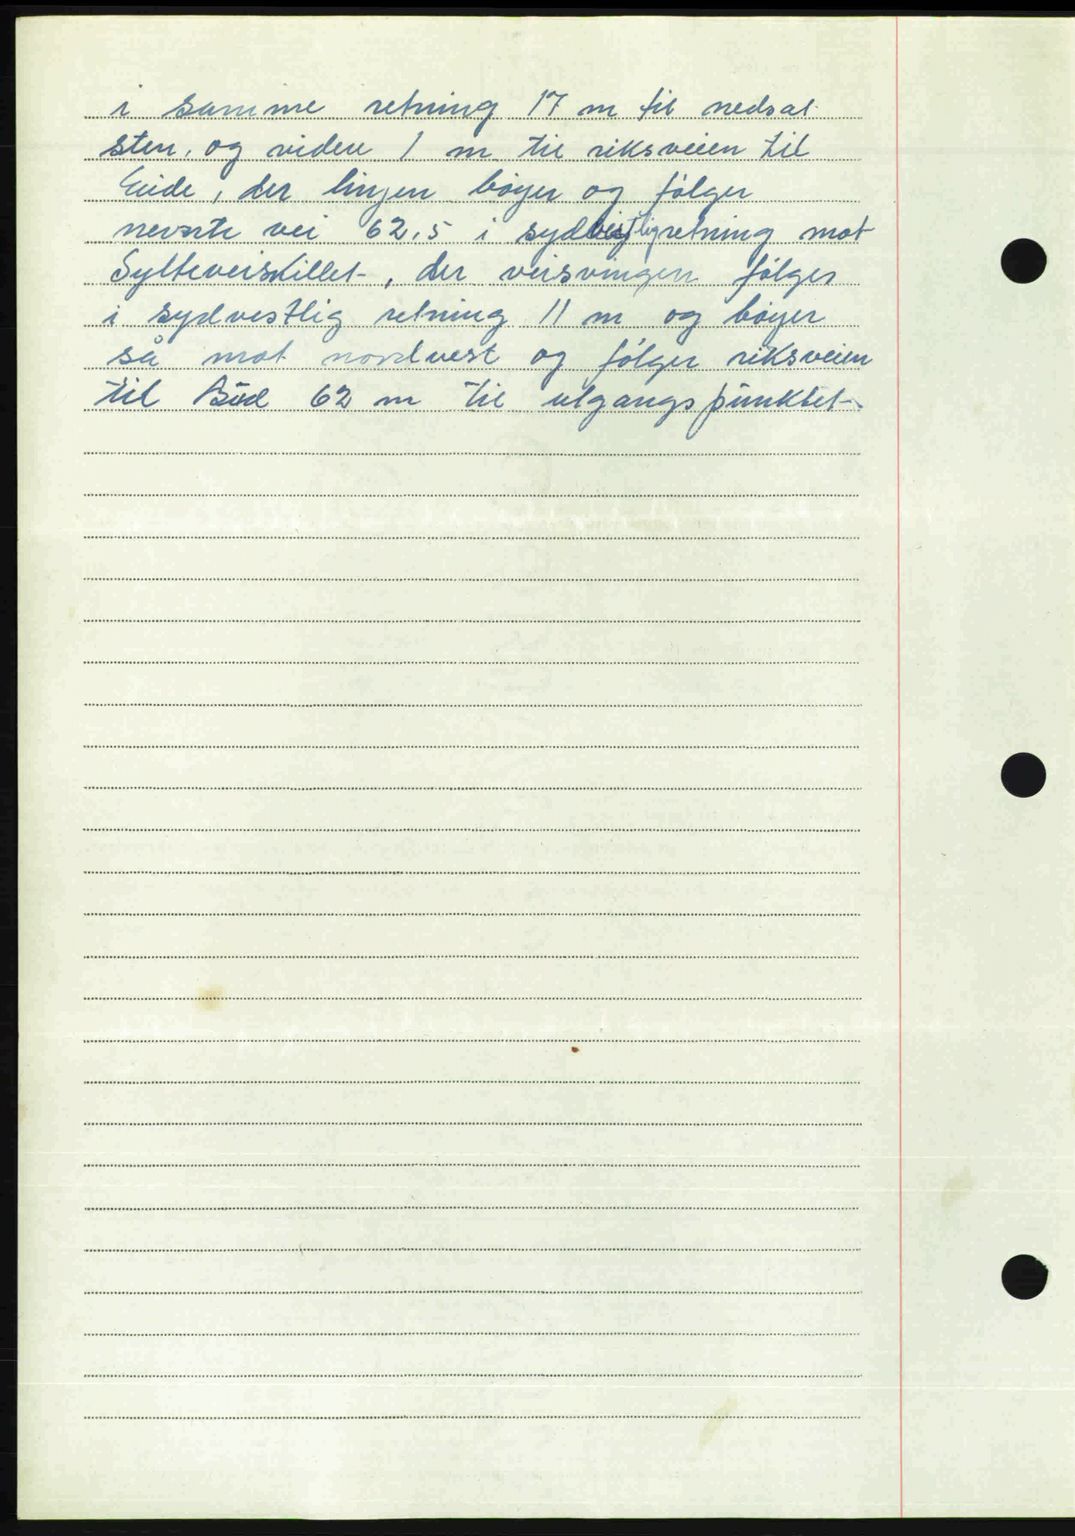 i samme retning 17 m til nedsat
sten, og videre 1 m til riksveien til
Eide, der linjen bøyer og følger
nevnte vei 62,5 i sydvestlig retning mot
Sylteveiskillet, der veisvingen følges
i sydvestlig retning 11 m og bøyer
så mot nordvest og følger riksveien
til Bud 62 m til utgangspunktet.